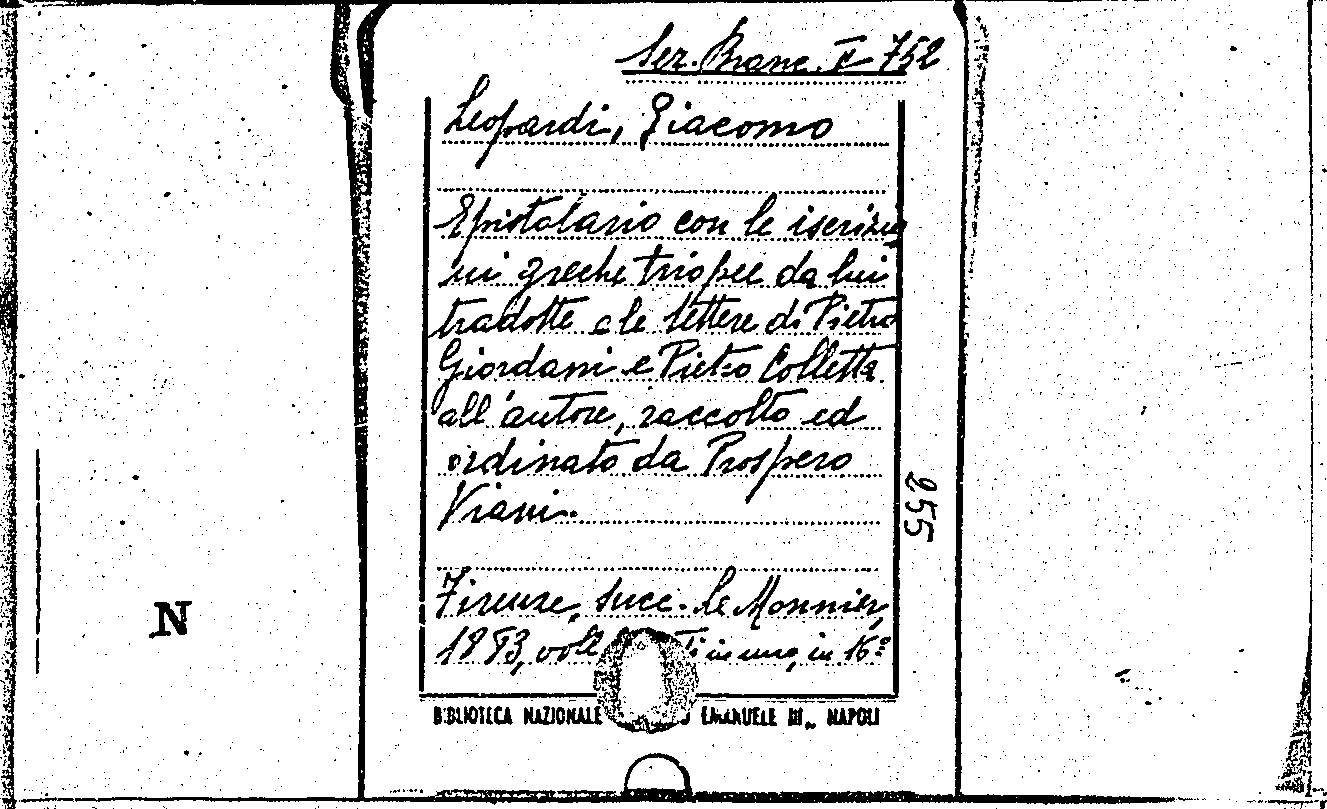 Sez. Branc. II 752
Leopardi, Giacomo
Epistolario con le iscrizio
ni greche triopee da lui
tradotte e le lettere di Pietro
Giordani e Pietro Colletta
all'autore, raccolto ed
ordinato da Prospero
Viani.
255
Firenze, succ. Le Monnier,
1883, voll in uno, in 16º
N
BIBLIOTECA NAZIONALE EMANUELE III„ NAPOLI